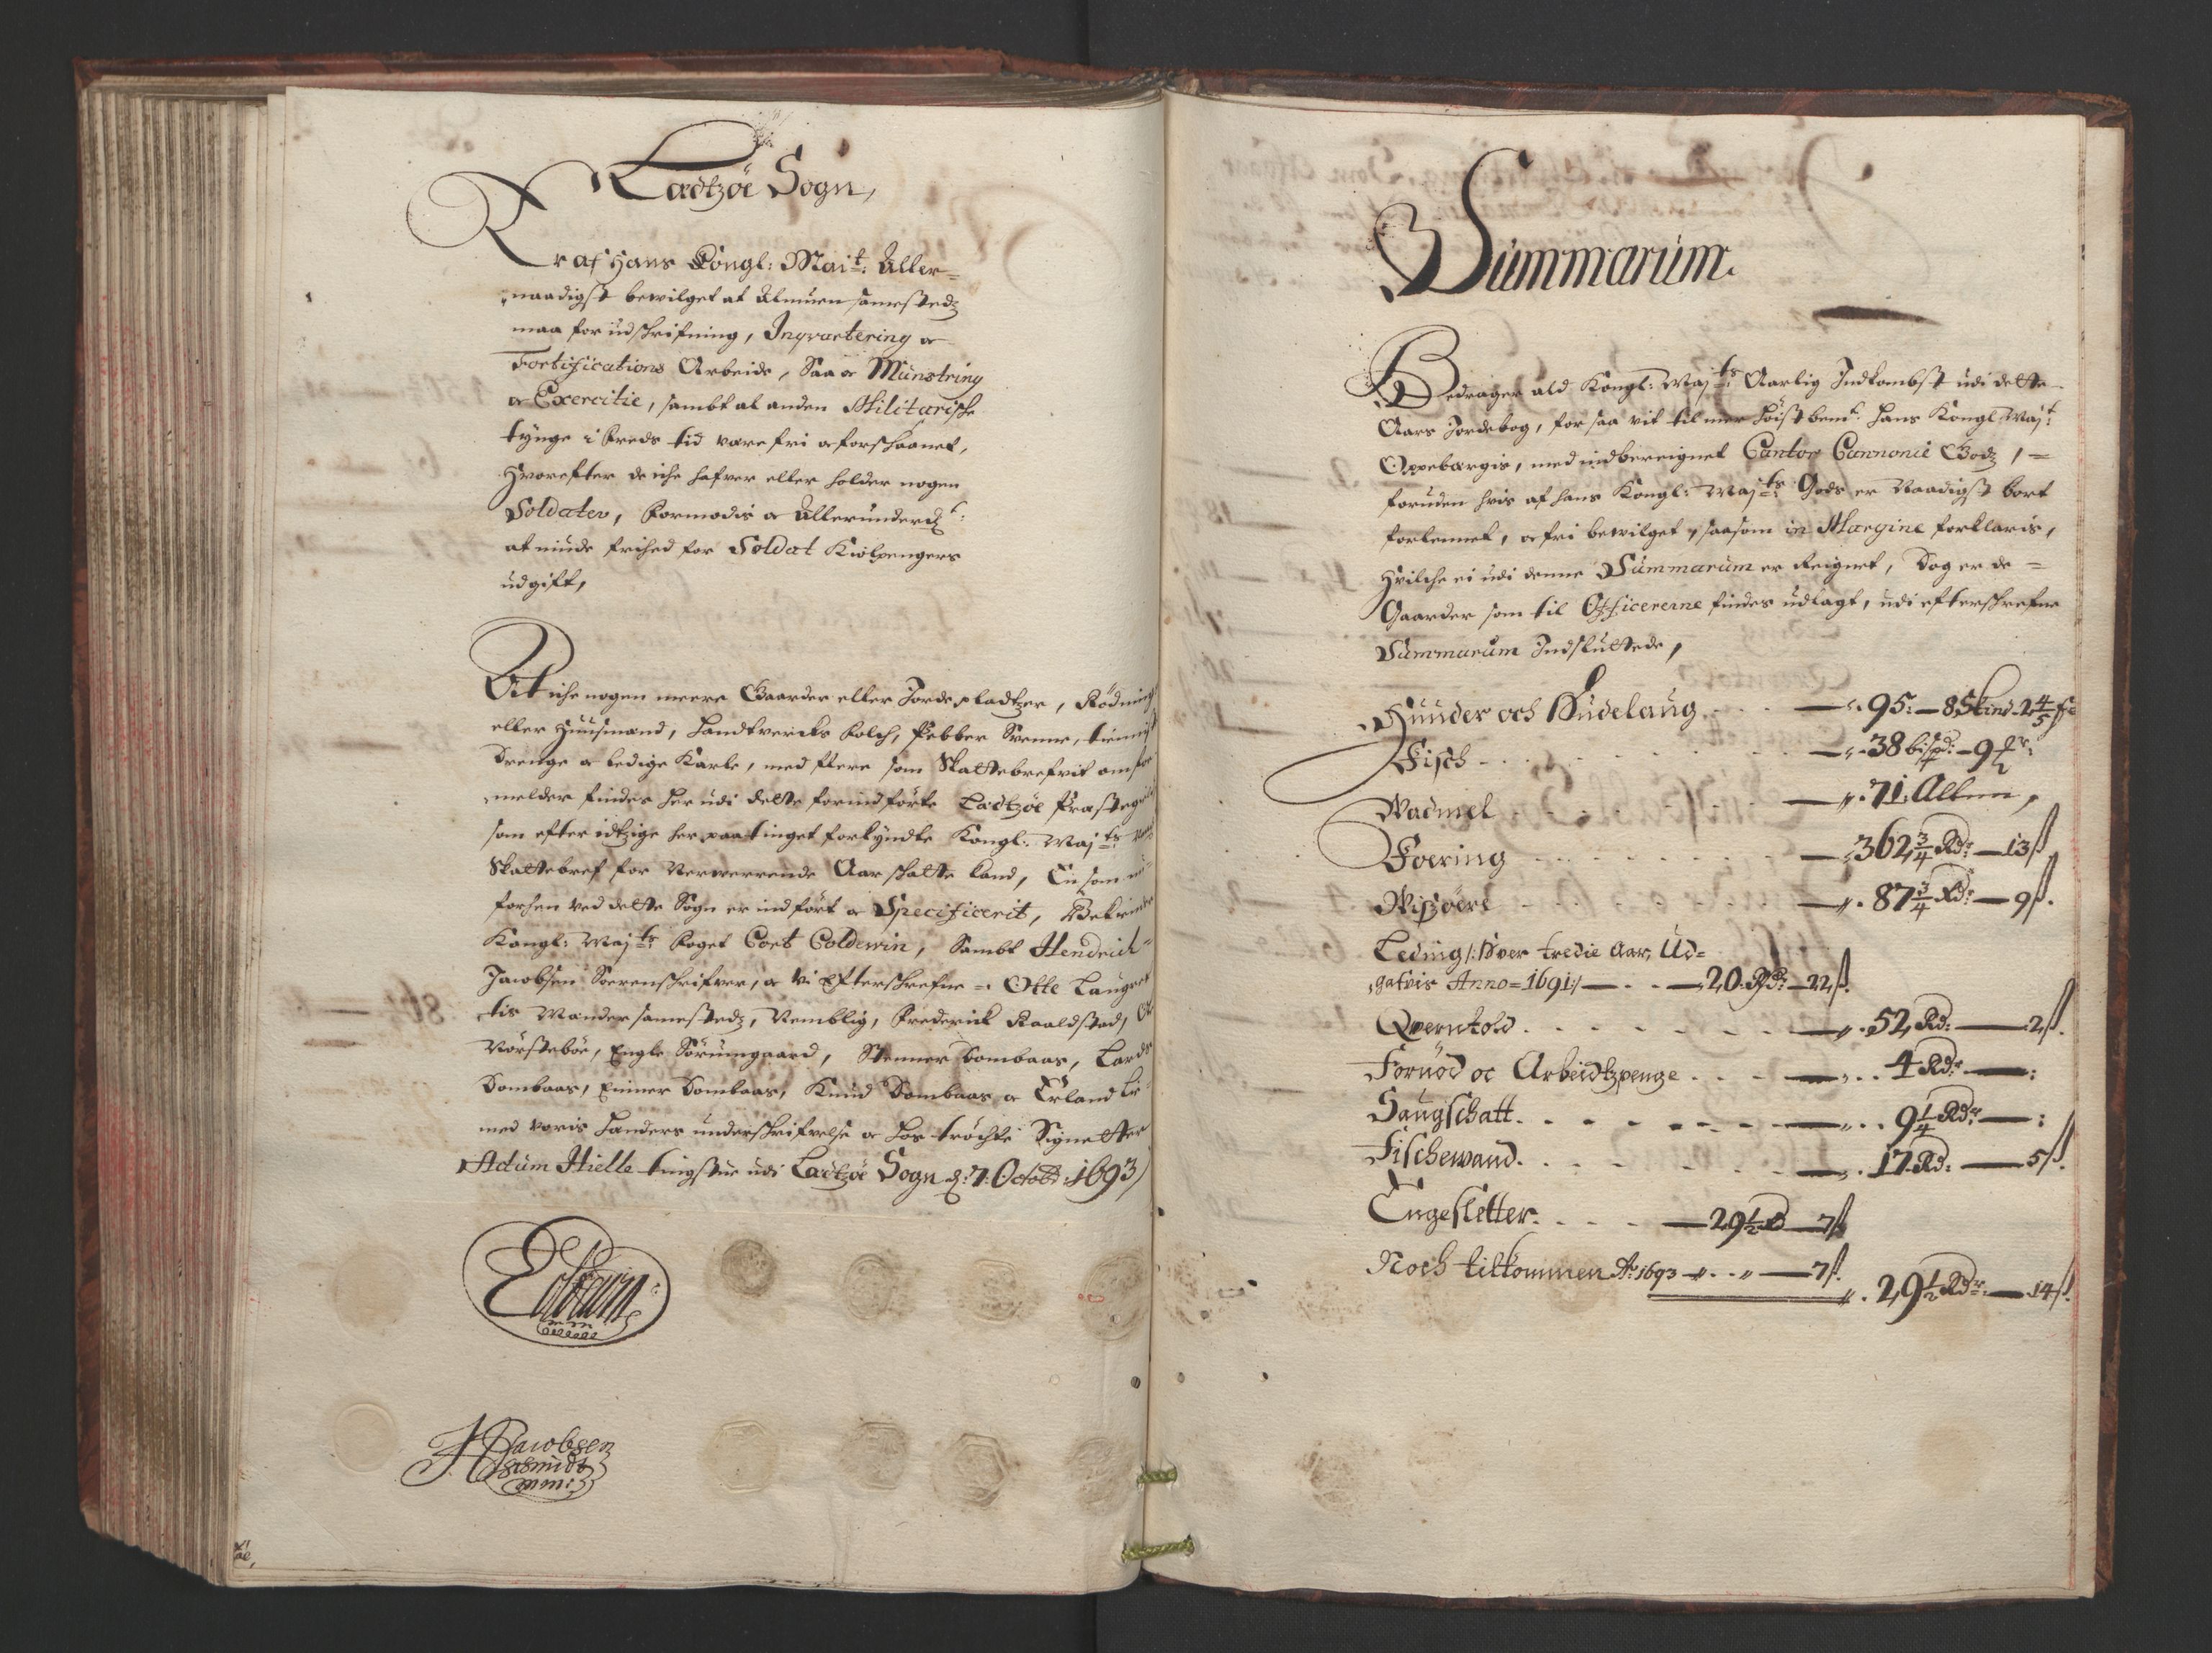 Lædtzöe Sogn,
Er af Hans Kongl: Mait: Aller=
naadigst bewilget at Almuen sammestedz
maa for udschrifning, Inqvartering oc
Fortifications Arbeide, Saa oc Münstring
oc Exercitie, sambt al anden Militarische
tÿnge i freds tid være fri oc forschaanet,
Hvorefter de iche hafver eller holder nogen
Soldater, formodis oc Allerunderd:
at niude frihed for Soldat
udgift,
At iche nogen meere Gaarder eller Jorde pladtzer, Rödning
eller Huusmænd, Landtverks folch, Pebber Svenne, tienniste
Drenge oc ledige Karle, med flere som Skattebrefvit om for
melder findes her udi dette forindförte Lædtzöe Præstegield
som efter idtzige her paa tinget forkÿndte Kongl: Maj:ts
Skattebref for Nerværende Aar schatte kand, En som nu
forhen ved dette Sogn er indfört oc Specificerit, Bekiender
Kongl: Maj:ts foget Coet Coldewin, Sambt Hendrich
Jacobsen Sorenschrifver, oc Vi Efterschrefne Otte Laugret
tis Mænder sammestedz, Nemblig, Frederich Raaldstad,
Nörsteböe, Engle Sörumgaard, Stenner Dombaas, Lars
Dombaas, Einner Dombaas, Knud Dombaas oc Erland
med voris Hænders underschrifvelse oc hos tröchte Signetter
Actum Hielle tingstue udi Lædtzöe Sogn d: 7: Octobr: 1693
HJacobsen
Schmidt
mm:
Summarum.
Bedrager ald Kongl: Maj:ts Aarlig Indkombst udi dette
Aars Jordebog, for saa vit til mer höist bemt: Hans Kongl: Maj:t
Oppebærgis, med indbereignet Cantor Cannonie Godz, =
foruden hvis af Hans Kongl: Maj:ts Gods er Naadigst bort
forlennet, oc fri bewilget, saasom in Margine forklaris,
Hvilche ei udi denne Summarum er Reignet, Dog er de =
Gaarder som til Officererne findes udlagt, udi efterschrefne
Summarum Indsluttede,
Huuder och Budelaug . . . — 95: — 8 Skind 2 4/5
Fisch . . . — 38 bispd: — 9
Wadmel . . . — 71: Allen,
Foering . . . — 362 3/4 Rdr — 13 ß
Wißöere . . . — 87 3/4 Rdr — 9 ß.
Leding /: Hver tredie Aar, Ud=
gafvis Anno = 1691 :/ — 20. Rdr — 22 ß.
Qverntold . . . — 52 Rd: — 2 ß.
Fornöd oc Arbeidtzpenge . . . — 4 Rdr — :
Saugschatt . . . — 9 1/4 Rdr — :
Fischewand . . . — 17. Rd: — 5 ß.
Engesletter . . . — 29 1/2 — 7 ß
Noch tilkommen Ao: 1693 — 7 ß.
29 1/2 Rdr — 14 ß.